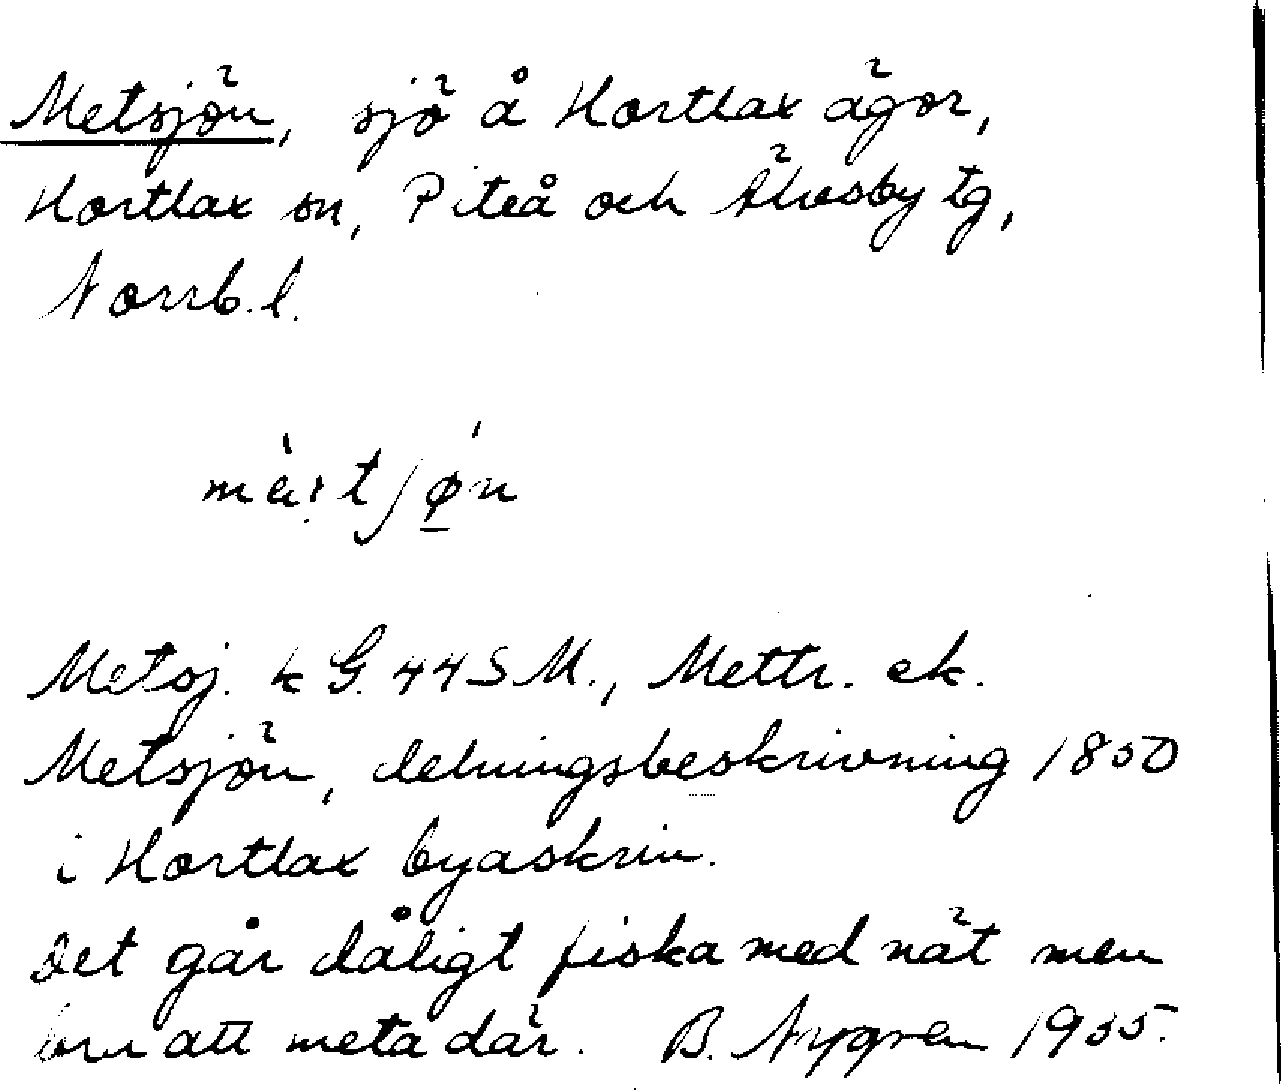 Metsjön, sjö å Hortlax ägor,
Hortlax sn, Piteå och Älvsby tg,
Norrb. l.
mè:tjøn
Metsj. k G. 44 S M., Mettr. ek.
Metsjön, delningsbeskrivning 1850
i Hortlax byaskrin.
Det går dåligt fiska med nät men
bra att meta där. B. Nygren 1935.